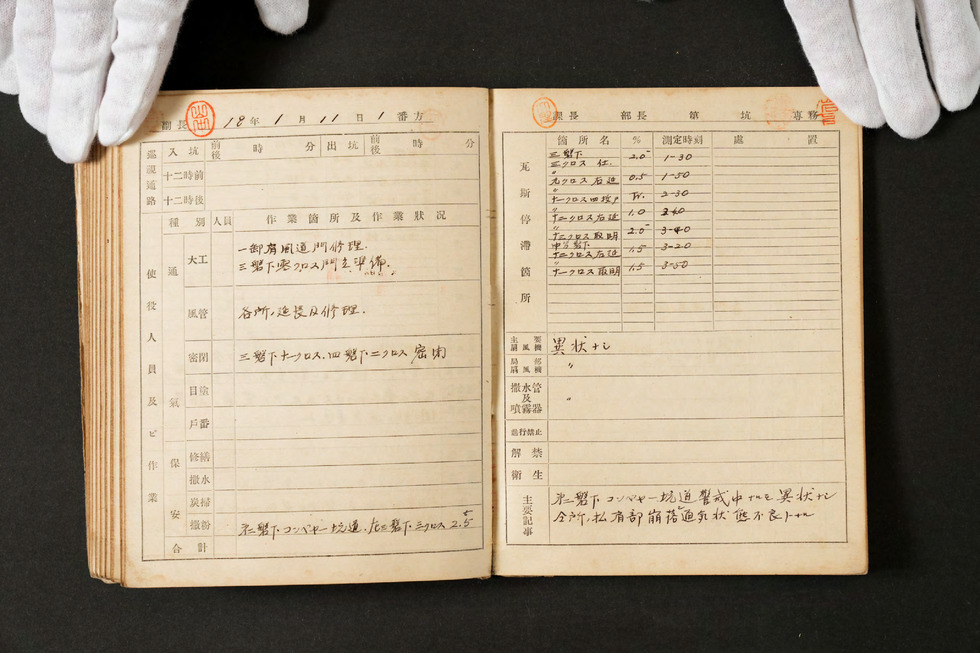 副長 18年 1月 11日 1番方
巡視通路
入坑 前後 時 分 出坑 前後 時 分
十二時前
十二時後
種別 人員 作業箇所及作業狀況
使役人員及ビ作業
通氣
大工
一卸肩風道門修理.
三盤下零クロス門立準備.
風管 各所、延長及修理.
密閉 三盤下十一クロス、四盤下ニクロス密閉
目塗
戶番
保安
修繕
撒水
炭掃
撒粉
合計
課長 部長 第 坑 専務
瓦斯停滯箇所
箇所名 % 測定時刻 處置
三盤下
三クロス 仕. 2.0 1-30
〃
九クロス右迫 0.5 1-50
〃
Tr. 2-30
〃
十二クロス右迫 1.0 2-40
〃
十二クロス取明 2.0 3-40
十二クロス右迫 1.5 3-20
〃
十一クロス取明 1.5 3-50
主要扇風機 異状ナシ
局部扇風機 〃
撒水管及噴霧器 〃
進行禁止
解禁
衛生
主要記事
コンベヤー坑道警戒中ナルモ異状ナシ
崩落通気状態不良トナル